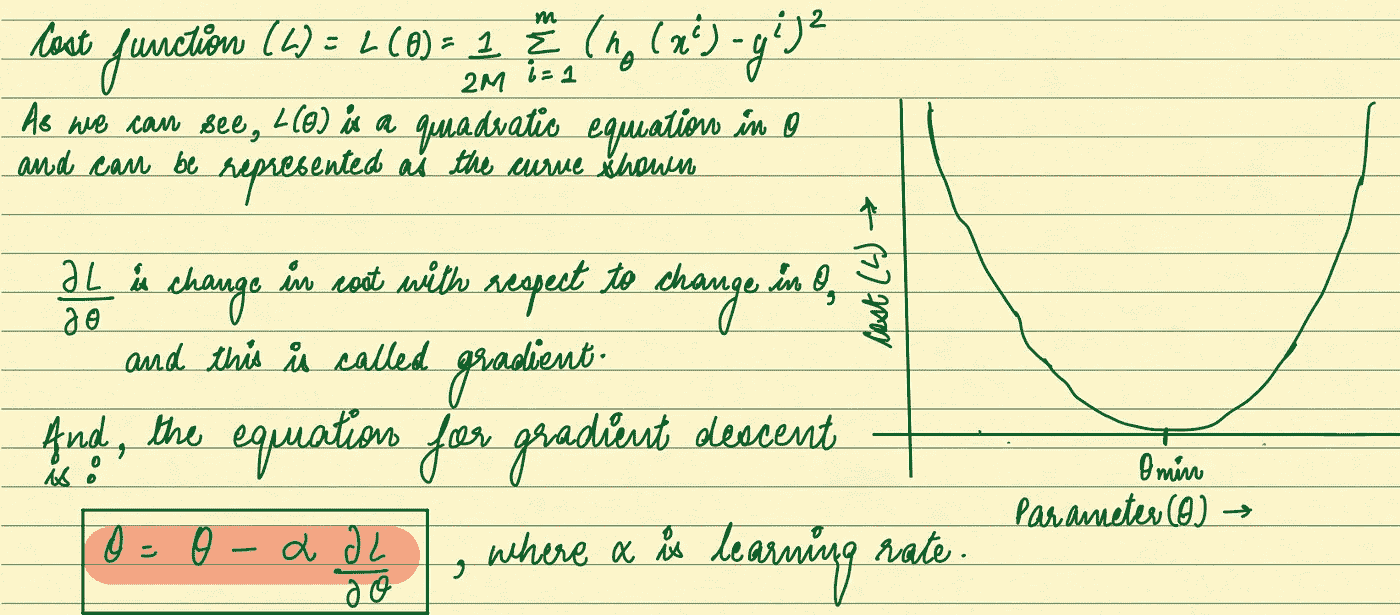 Cost function (L) = L(θ) = 1/2M m Σ i=1 (hθ (xⁱ) - yⁱ)²
As we can see, L(θ) is a quadratic equation in θ
and can be represented as the curve shown
∂L/∂θ is change in cost with respect to change in θ,
and this is called gradient.
And, the equation for gradient descent
is :
θ = θ - α ∂L/∂θ , where α is learning rate.
Cost (L) →
θmin
Parameter(θ) →